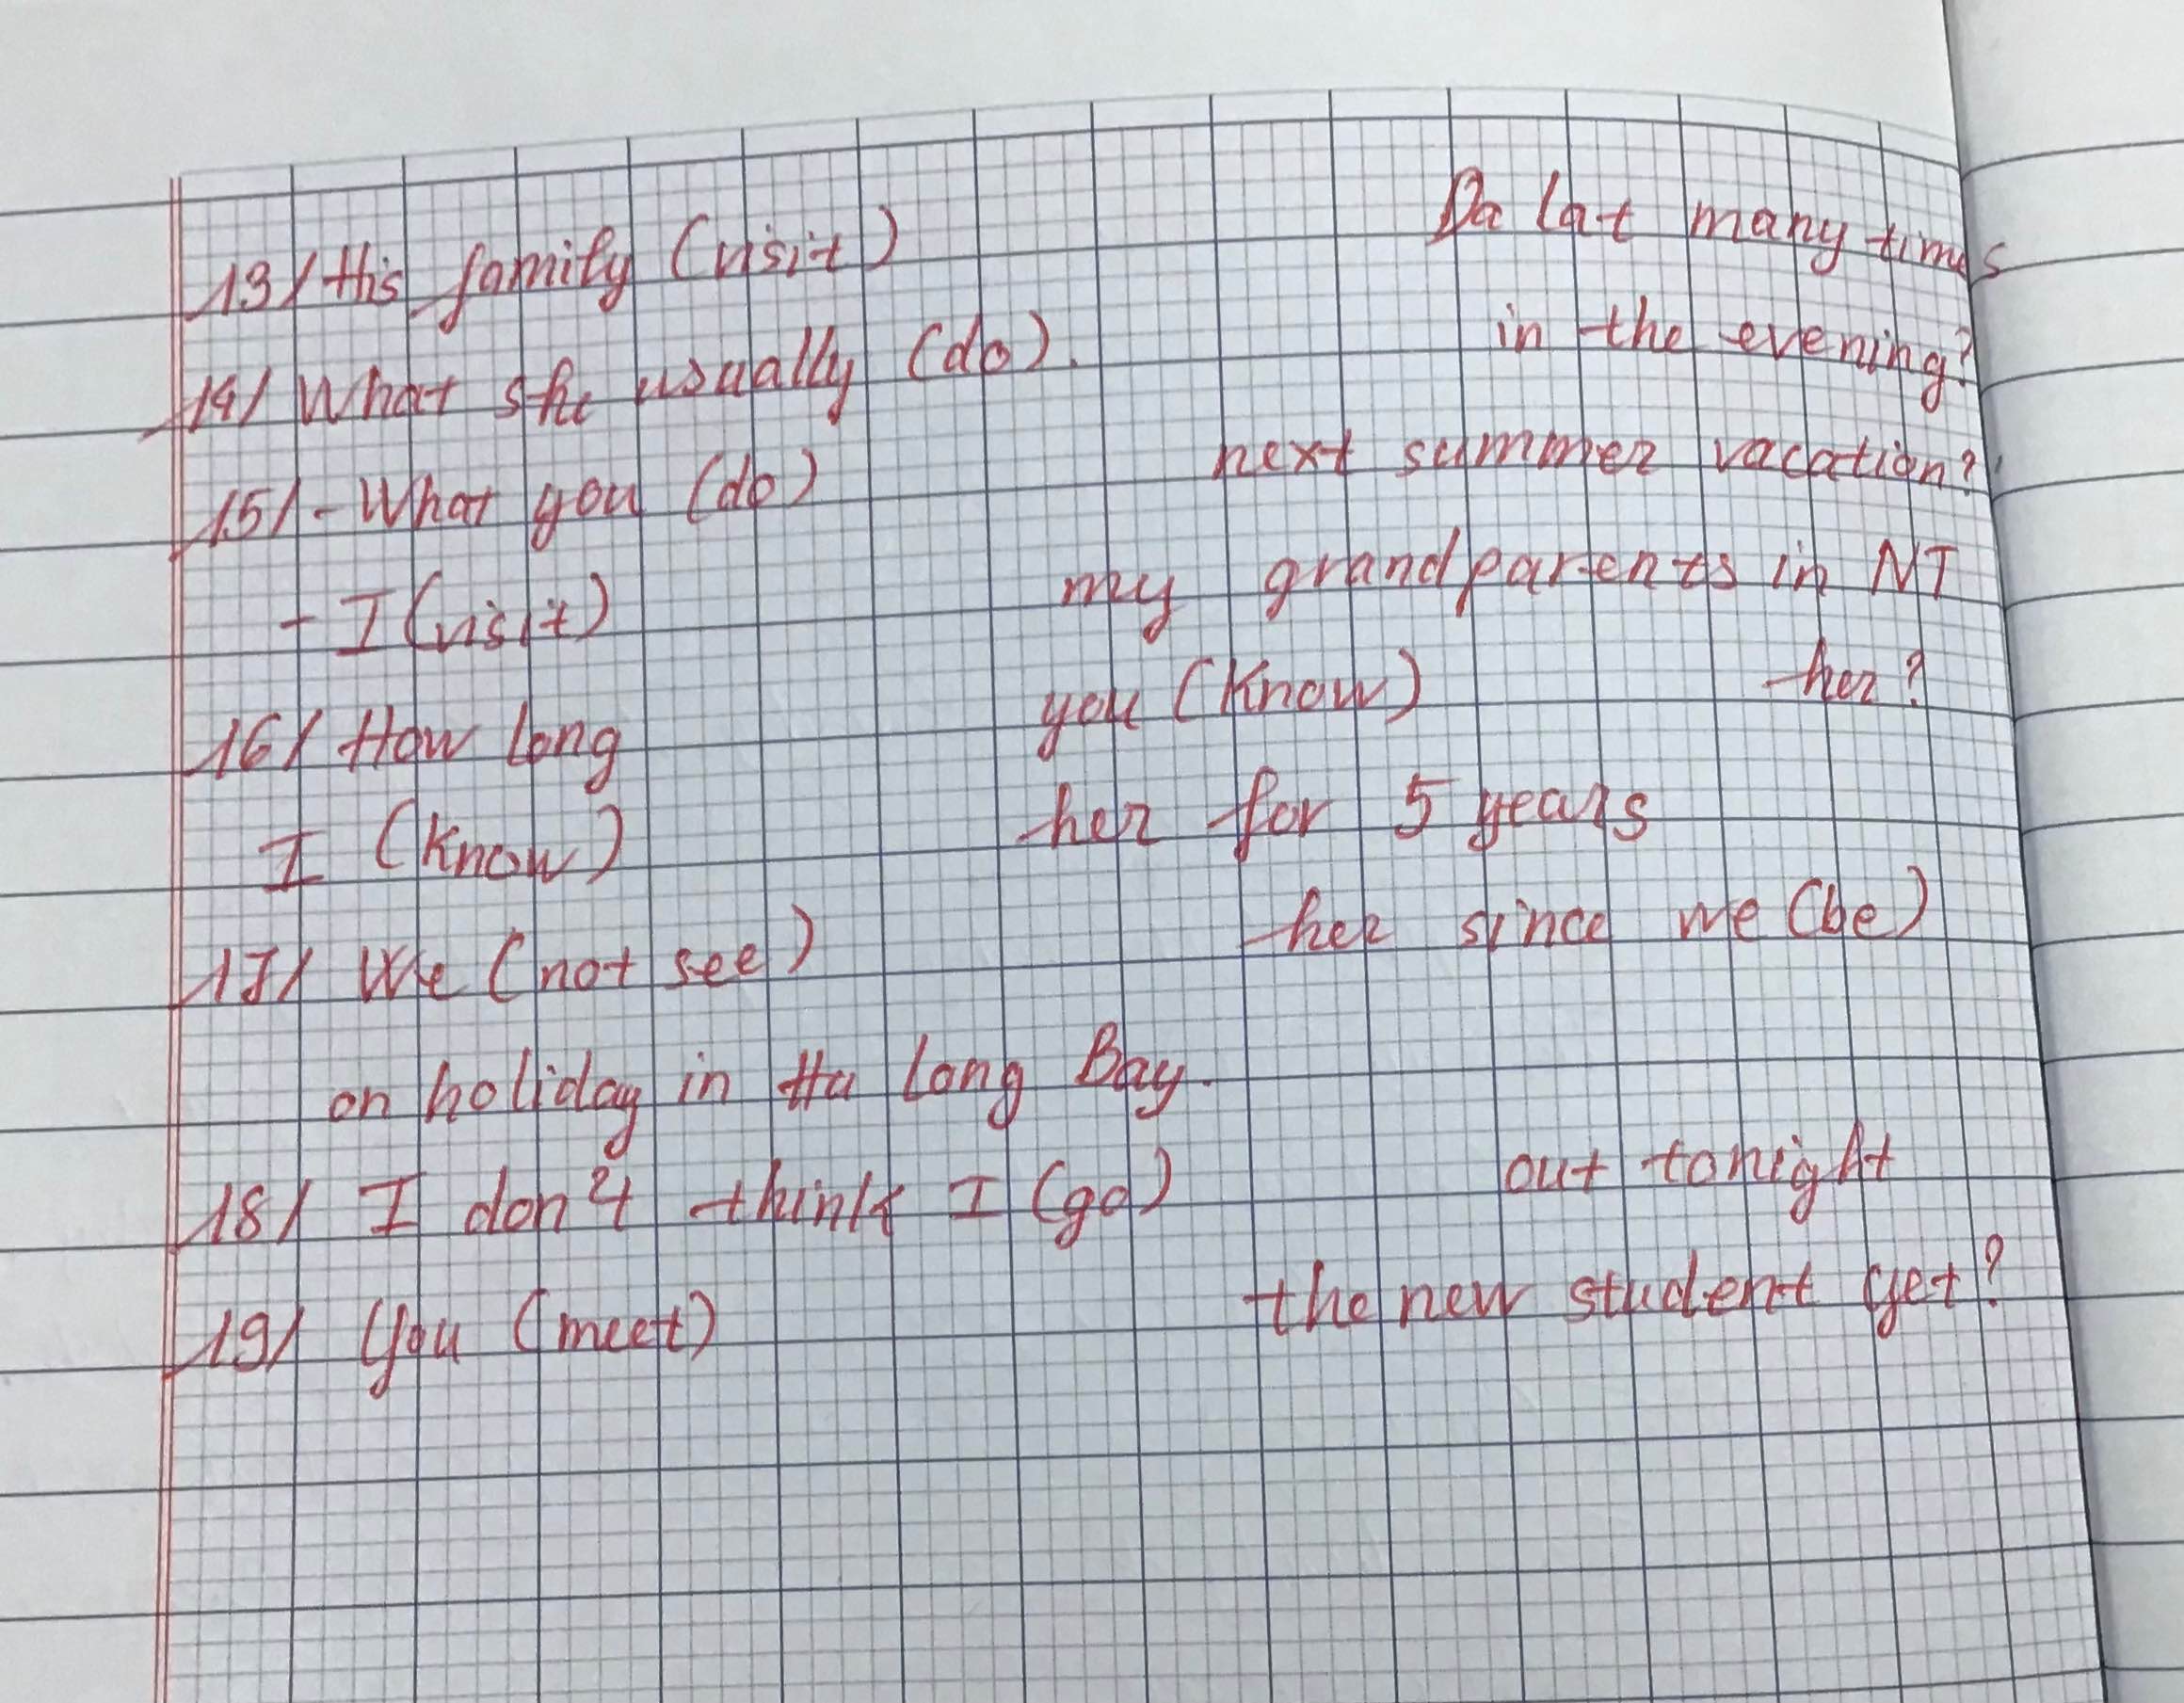 13/ His family (visit) Da Lat many times
14/ What she usually (do). in the evening?
15/ - What you (do) next summer vacation?
- I (visit) my grandparents in NT
16/ How long you (know) her?
I (know) her for 5 years
17/ We (not see) her since we (be)
on holiday in Ha Long Bay.
18/ I don't think I (go) out tonight
19/ You (meet) the new student yet?